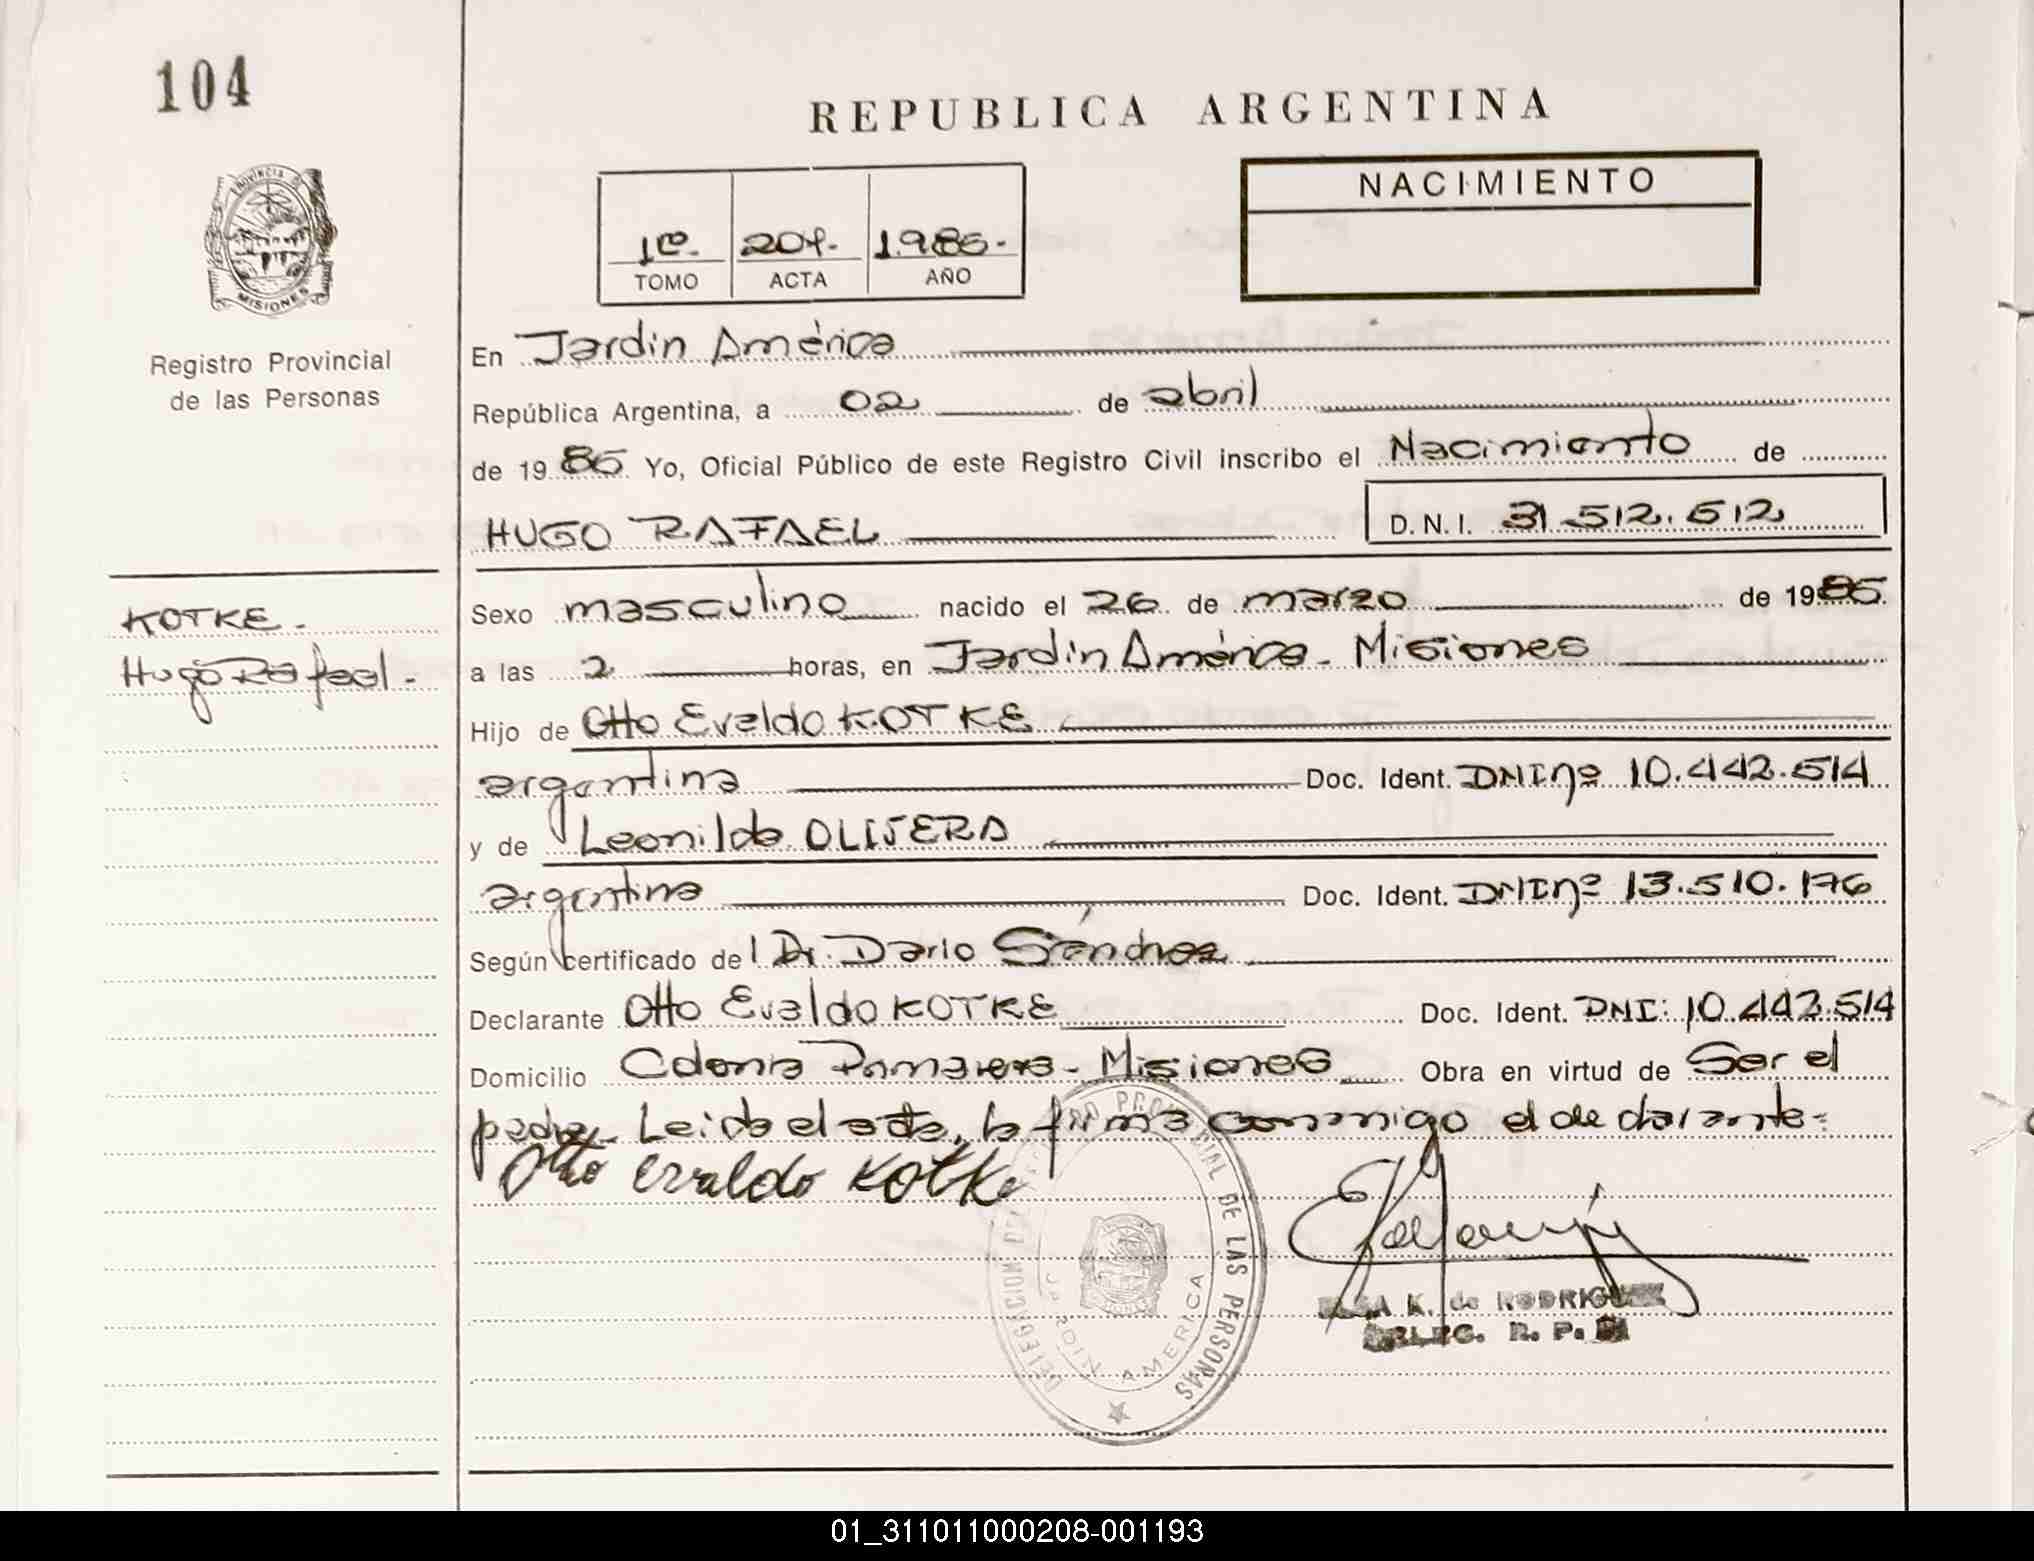 104
REPUBLICA ARGENTINA
PROVINCIA DE
MISIONES
Registro Provincial
de las Personas
1º.- 204.- 1.985.-
TOMO ACTA AÑO
NACIMIENTO
En Jardín América
República Argentina, a 02 de abril
de 1985 Yo, Oficial Público de este Registro Civil inscribo el Nacimiento de
HUGO RAFAEL D.N.I. 31.512.512
KOTKE.-
Hugo Rafael.-
Sexo masculino nacido el 26 de marzo de 1985
a las 2 horas, en Jardín América - Misiones
Hijo de Otto Evaldo KOTKE
argentina Doc. Ident. DNI nº 10.442.514
y de Leonilda OLIVERA
argentina Doc. Ident. DNI nº 13.510.176
Según certificado del Dr. Dario Sánchez
Declarante Otto Evaldo KOTKE Doc. Ident. DNI: 10.442.514
Domicilio Colonia - Misiones Obra en virtud de Ser el
padre. Leida el acta, la firma conmigo el declarante=
Otto Evaldo Kotke
DELEGACION DEL REGISTRO PROVINCIAL DE LAS PERSONAS
JARDIN AMERICA
K. de RODRIGUEZ
DELEG. R. P.
01_311011000208-001193